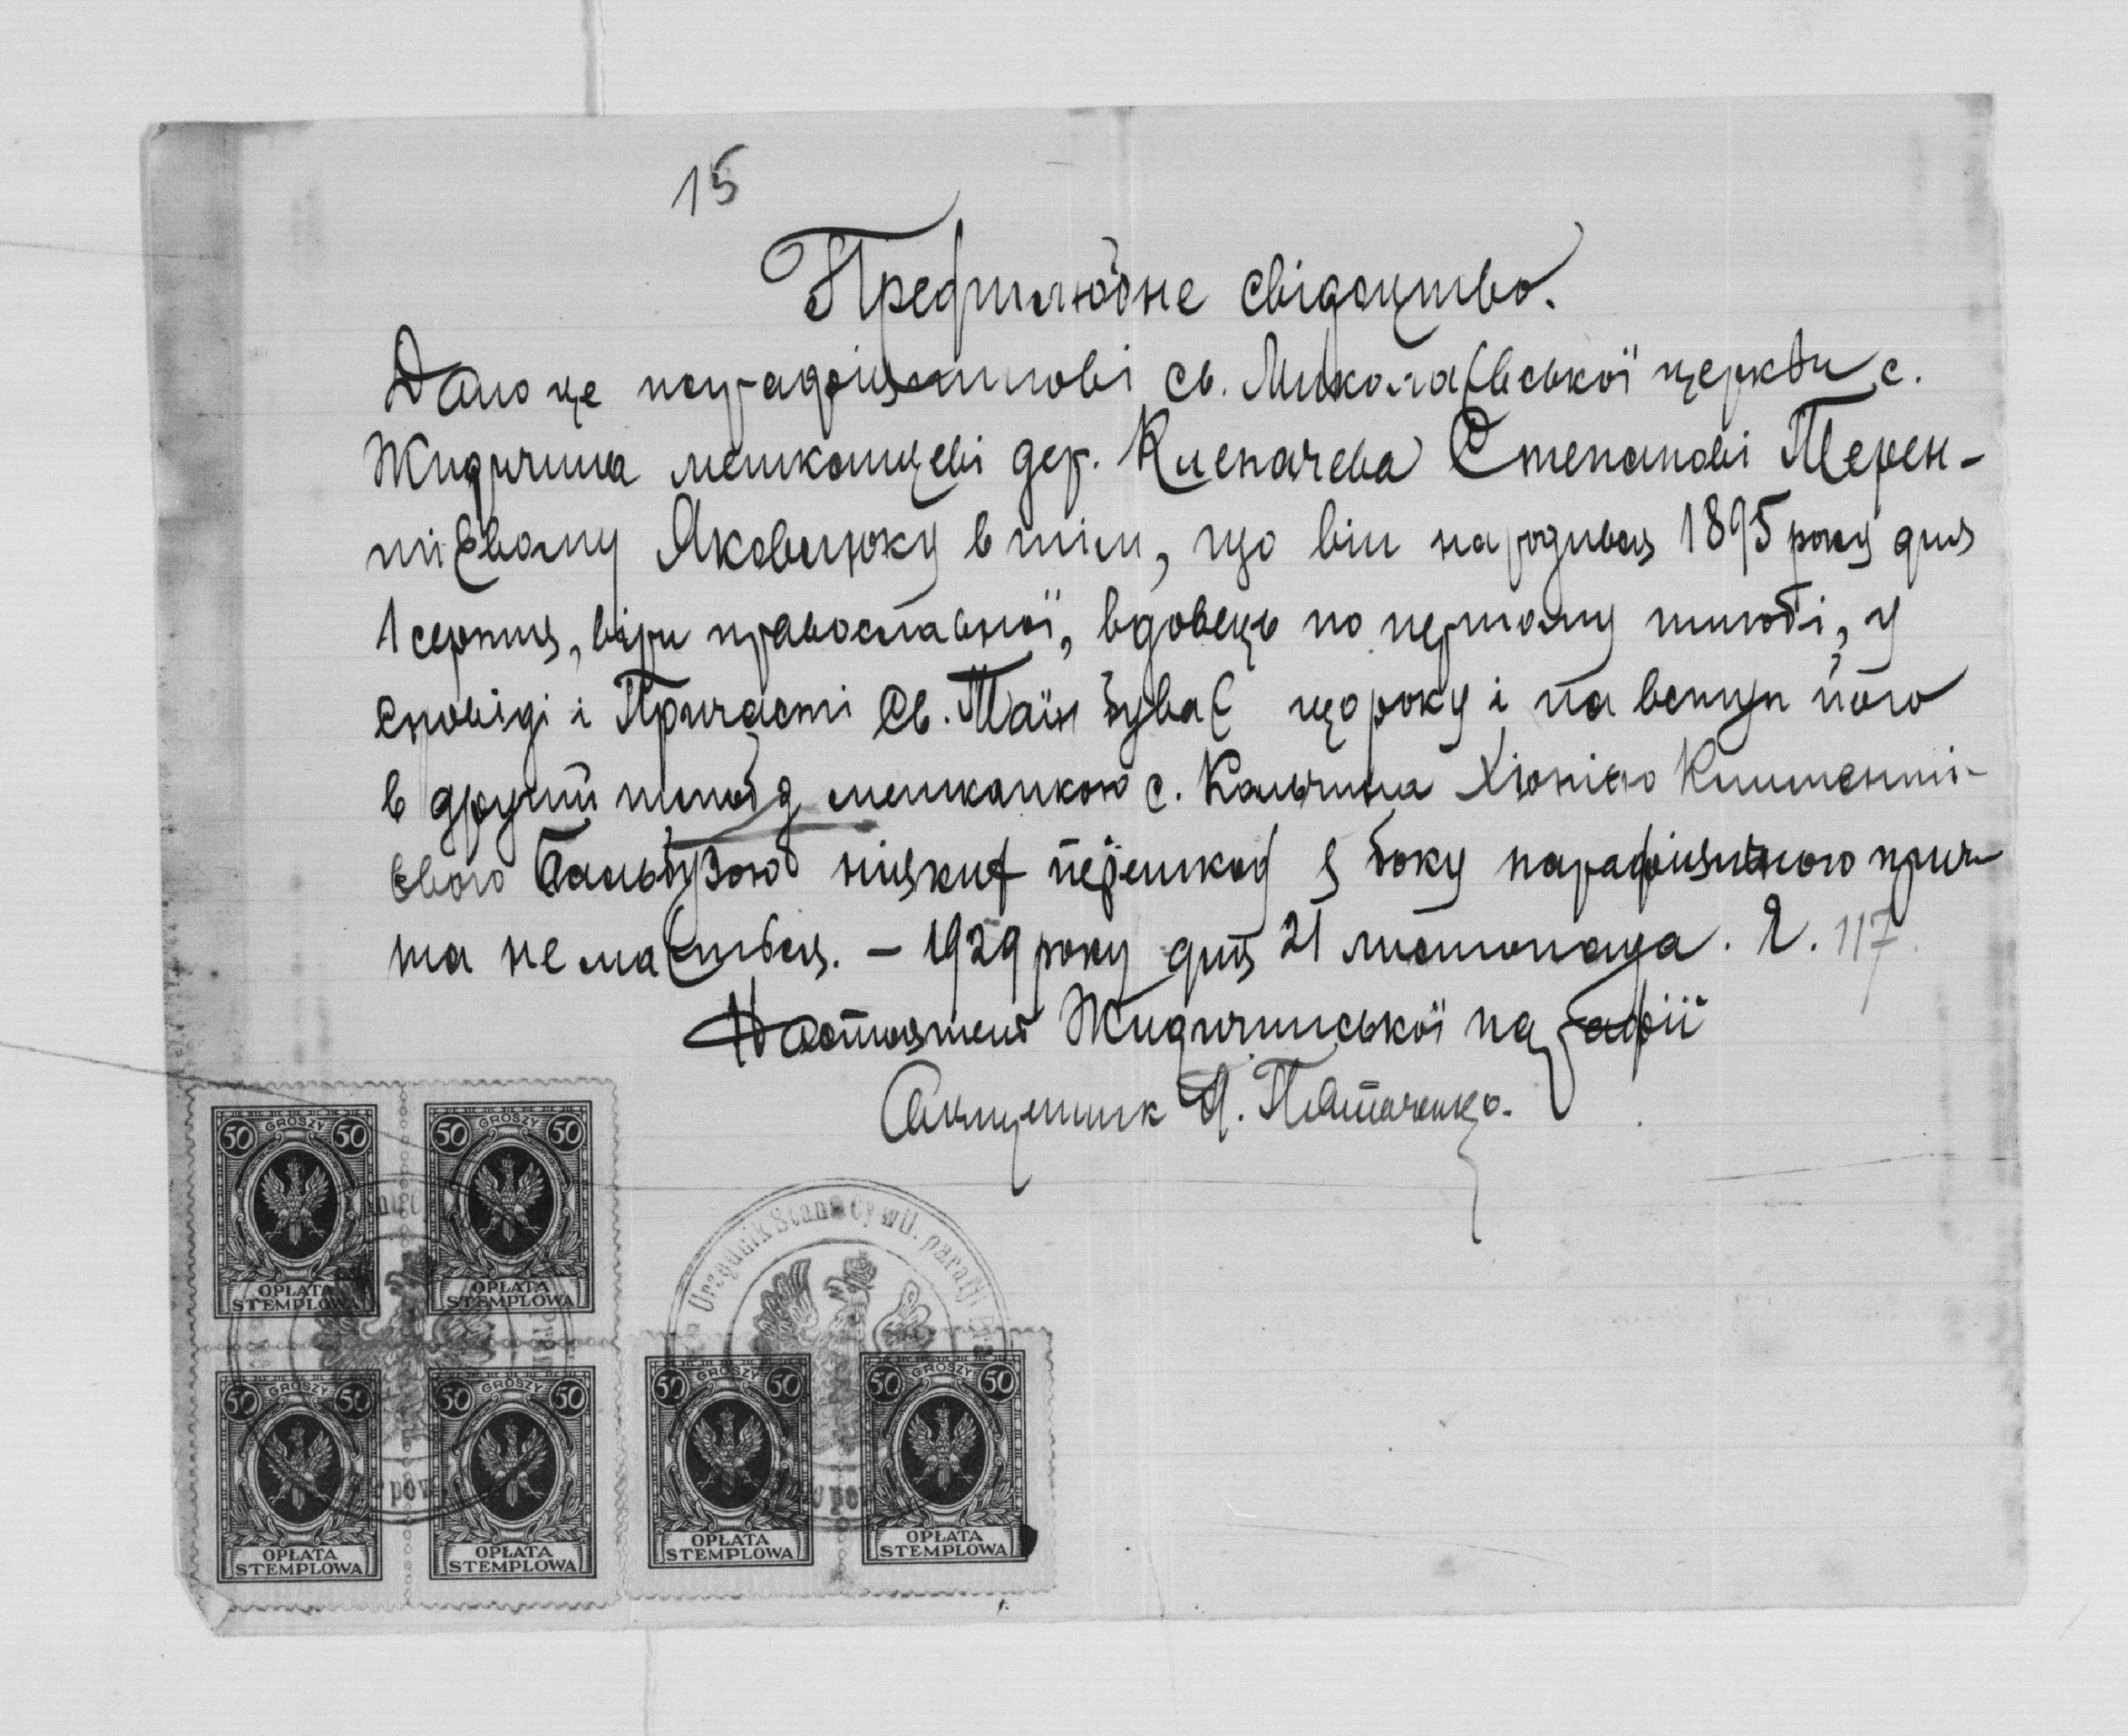 15
Предшлюбне свідоцтво.
Дано це парафіянинові св. Миколаєвської церкви с.
Жидичина мешканцеві дер. Клепачева Степанові Терен-
тієвому Яковлюку в тім, що він народився 1895 року дня
1 серпня, віри православної, вдовець по першому шлюбі, у
сповіді і Причасті Св. Таїн буває щороку і на вступ його
в другий шлюб з мешканкою с. Кольчина Хіонією Клименті-
євою Гальбузою ніяких перешкод з боку парафіяльного прич-
та не мається. – 1929 року дня 21 листопада. Ч. 117.
Настоятель Жидичинської парафії
Священик
50 GROSZY 50
OPŁATA
STEMPLOWA
50 GROSZY 50
OPŁATA
STEMPLOWA
50 GROSZY 50
OPŁATA
STEMPLOWA
50 GROSZY 50
OPŁATA
STEMPLOWA
50 GROSZY 50
OPŁATA
STEMPLOWA
50 GROSZY 50
OPŁATA
STEMPLOWA
Urzędnik Stanu Cywil. parafji